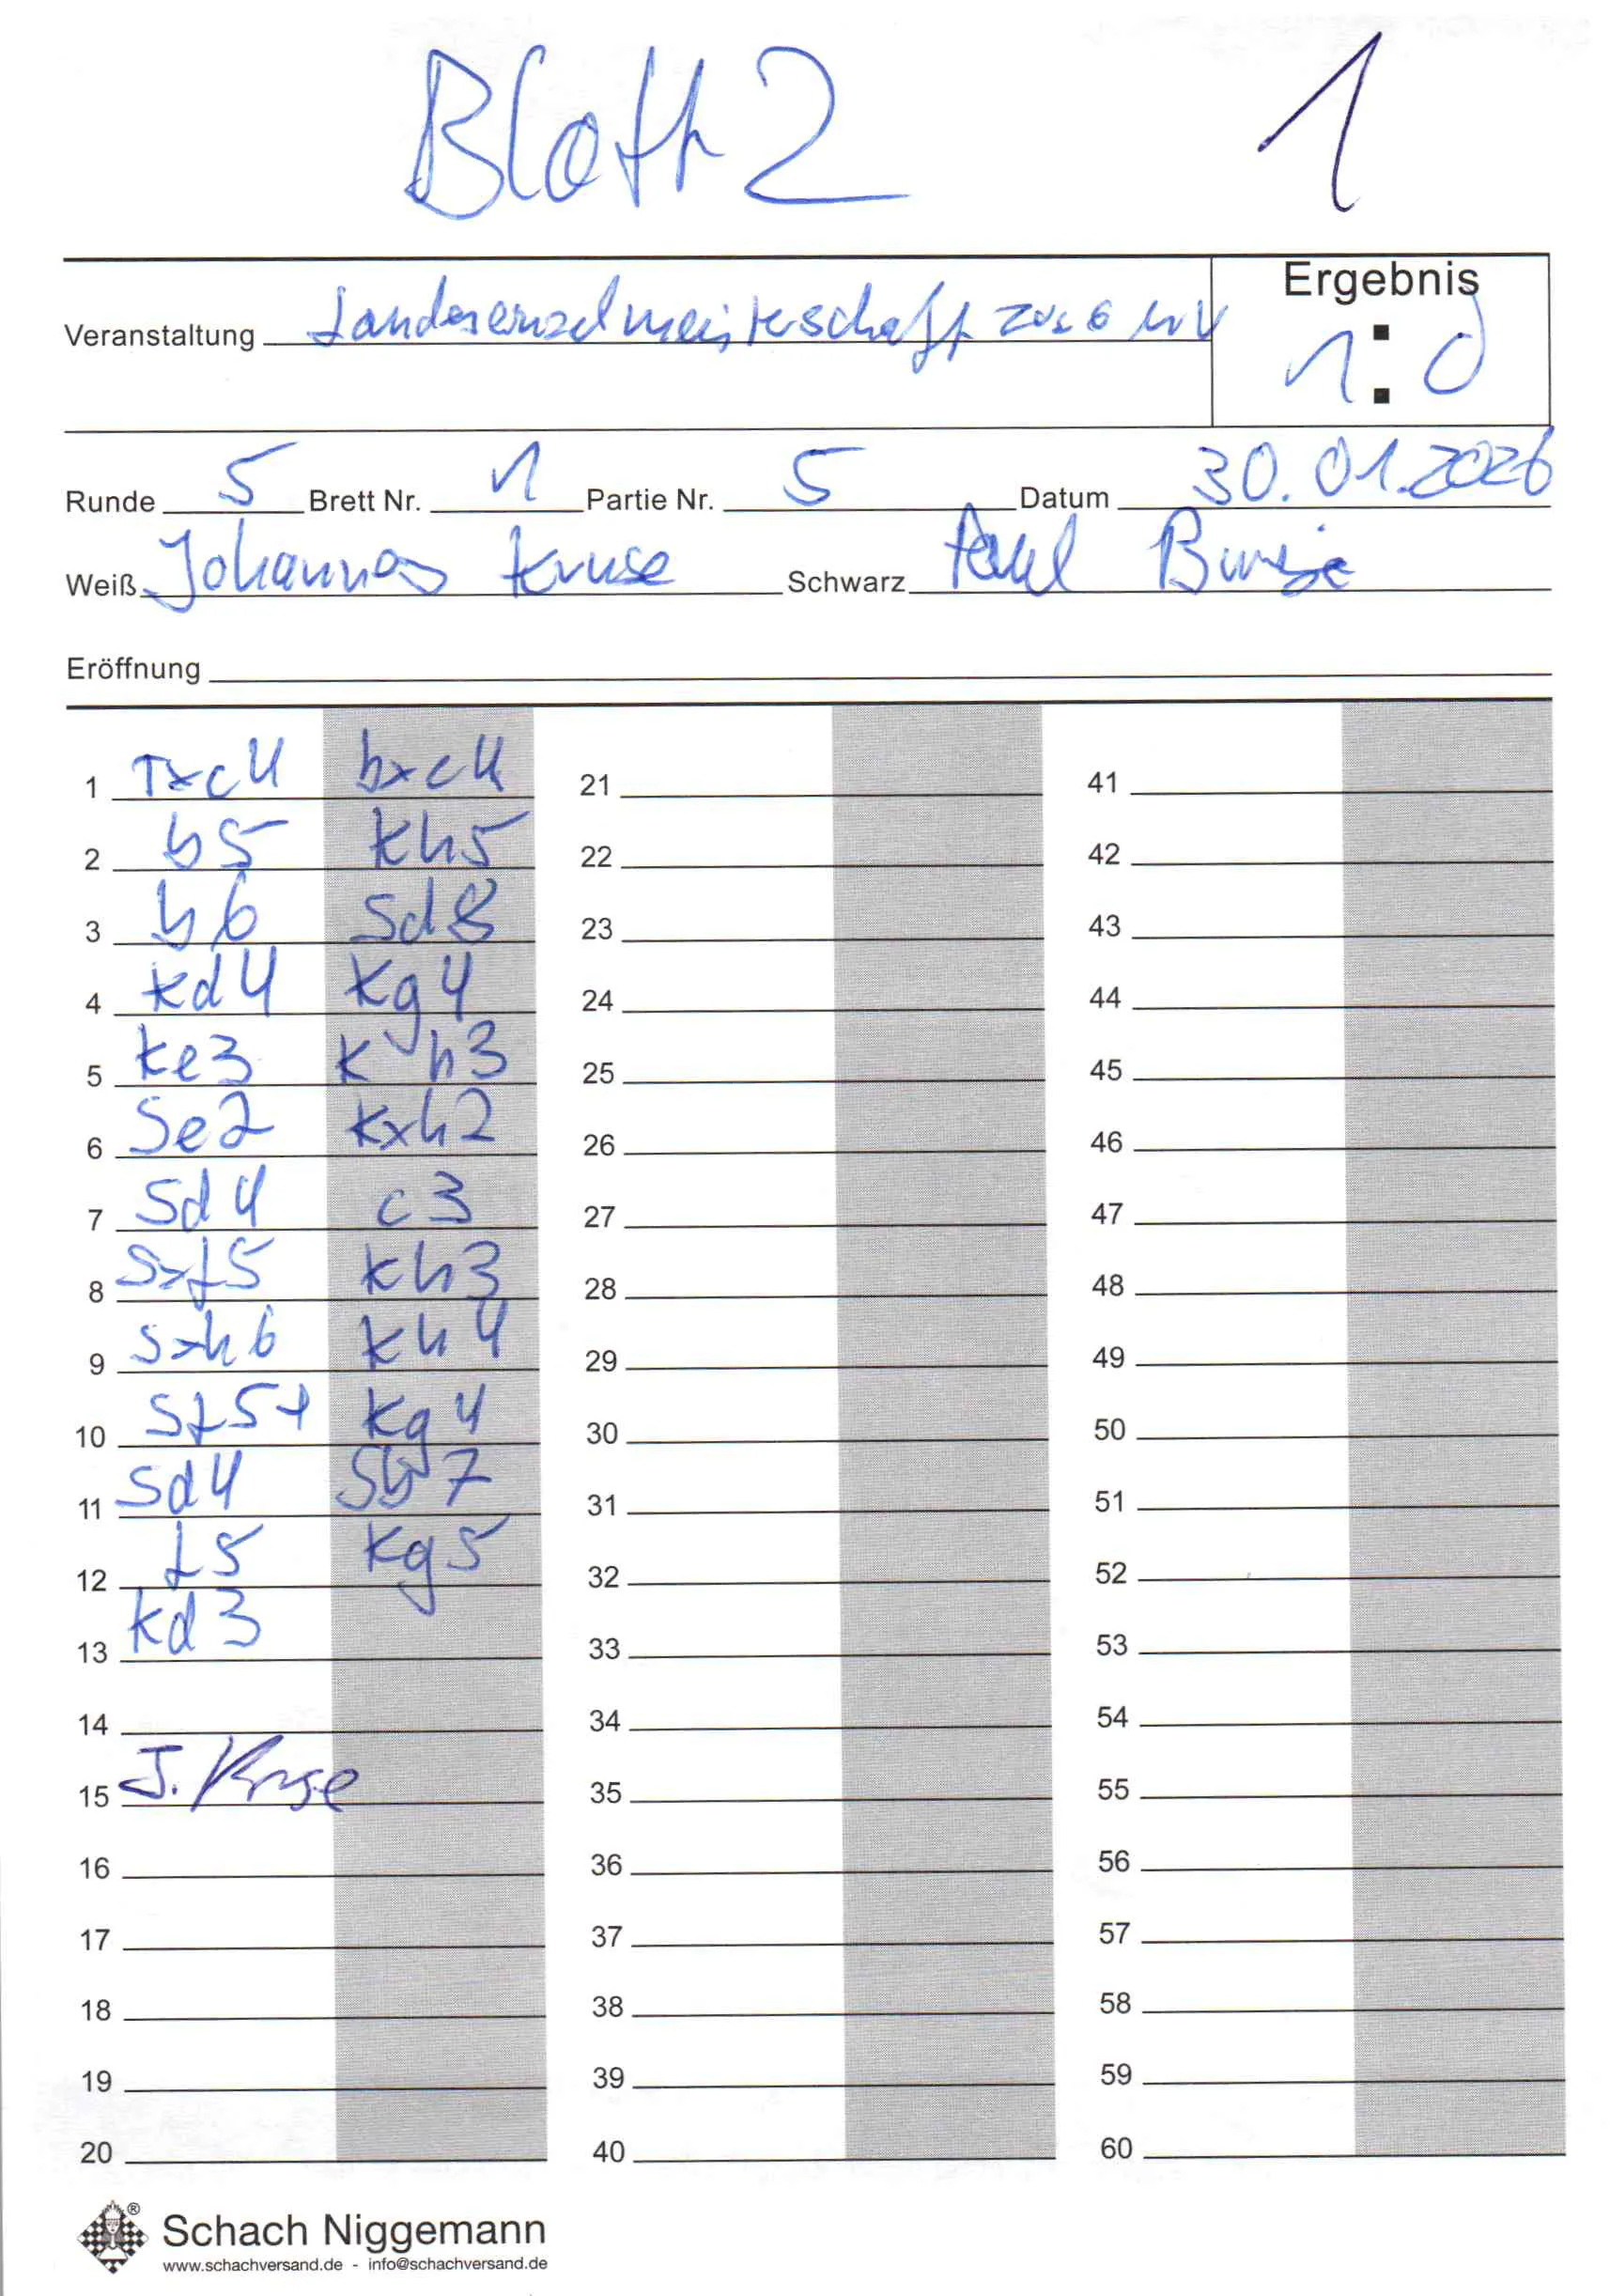 Blatt 2 1
Ergebnis
Veranstaltung Landeseinzelmeisterschaft 2026 MV
1 : 0
Runde 5 Brett Nr. 1 Partie Nr. 5 Datum 30.01.2026
Weiß Johannes Kruse Schwarz Paul
Eröffnung
1 Txc4 bxc4 21 41
2 b5 Kh5 22 42
3 b6 Sd8 23 43
4 Kd4 Kg4 24 44
5 Ke3 Kh3 25 45
6 Se2 Kxh2 26 46
7 Sd4 c3 27 47
8 Sxf5 Kh3 28 48
9 Sxh6 Kh4 29 49
10 Sf5+ Kg4 30 50
11 Sd4 Sb7 31 51
12 f5 Kg5 32 52
13 Kd3 33 53
14 34 54
15 J. Kruse 35 55
16 36 56
17 37 57
18 38 58
19 39 59
20 40 60
® Schach Niggemann
www.schachversand.de - info@schachversand.de